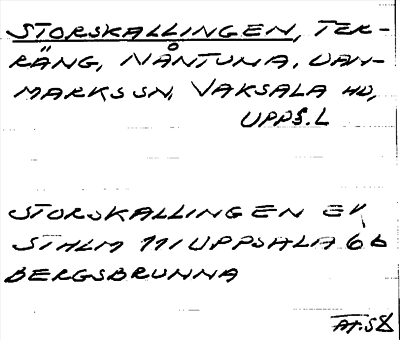 STORSKALLINGEN, TER-
RÄNG, NÅNTUNA, DAN-
MARKS SN, VAKSALA HD,
UPPS. L
STORSKALLINGEN EK
STHLM 111 UPPSALA 6 b
BERGSBRUNNA